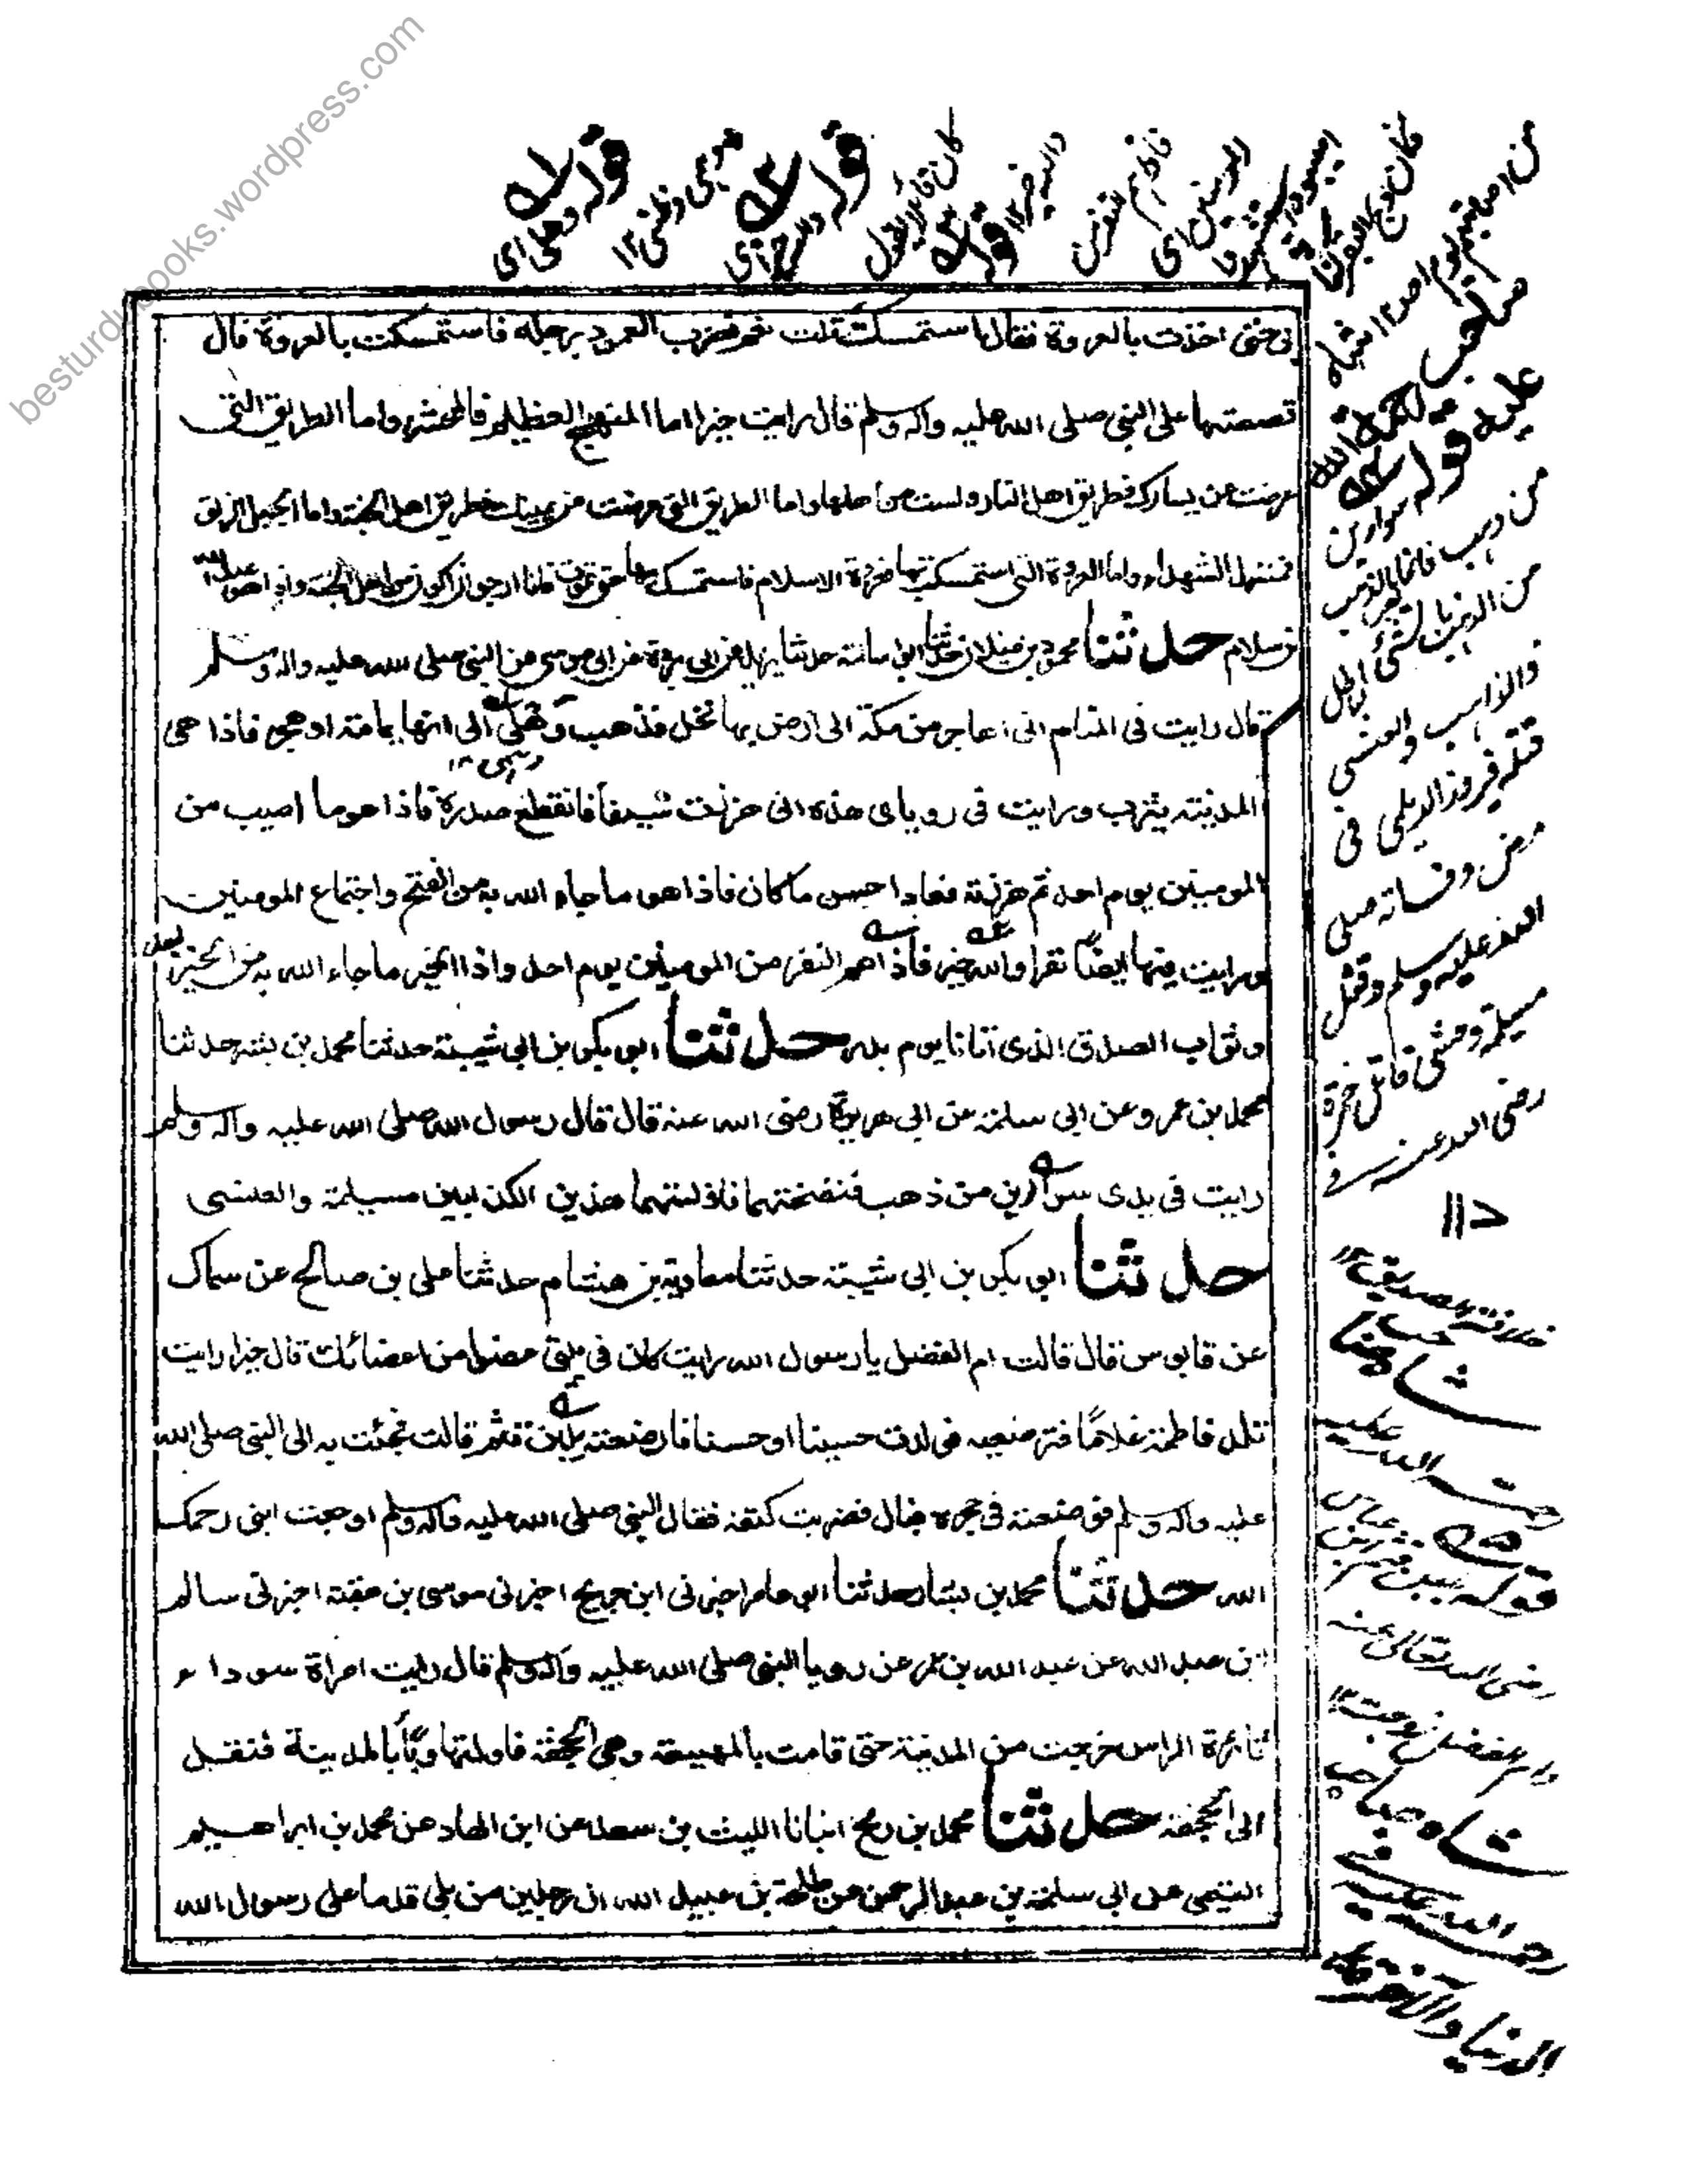 besturdubooks.wordpress.com
قوله وهلي اى
وهمي وظني ١٢
قوله والله خير اى
كان قائلا يقول
والله خير ١٢ قوله
فاذا هم النفر
اخذت بالعروة فقال استمسكت قلت نعم فضرب العمود برجله فاستمسكت بالعروة قال
قصصتها على النبي صلى الله عليه واله وسلم قال رايت خيرا اما المنهج العظيم فالمحشر واما الطريق التى
عرضت عن يسارك فطريق اهل النار ولست من اهلها واما الطريق التى عرضت عن يمينك فطريق اهل الجنة واما الجبل الزلق
فمنزل الشهداء واما العروة التى استمسكت بها فعروة الاسلام فاستمسك بها حتى تموت فانا ارجو ان اكون من اهل الجنة واذا هو عبد الله
بن سلام حدثنا محمود بن غيلان حدثنا ابو اسامة حدثنا بريد عن ابى بردة عن ابى موسى عن النبى صلى الله عليه واله وسلم
قال رايت فى المنام انى اهاجر من مكة الى ارض بها نخل فذهب وهلى الى انها يمامة او هجر فاذا هى
المدينة يثرب ورايت فى روياى هذه انى هززت سيفا فانقطع صدره فاذا هو ما اصيب من
المومنين يوم احد ثم هززته فعاد احسن ما كان فاذا هو ما جاء الله به من الفتح واجتماع المومنين
ورايت فيها ايضًا بقرا والله خير فاذا هم النفر من المومنين يوم احد واذا الخير ما جاء الله به من الخير بعد
وثواب الصدق الذى اتانا يوم بدر حدثنا ابو بكر بن ابى شيبة حدثنا محمد بن بشر حدثنا
محمد بن عمرو عن ابى سلمة عن ابى هريرة رضى الله عنه قال قال رسول الله صلى الله عليه واله وسلم
رايت فى يدى سوارين من ذهب فنفختهما فاولتهما هذين الكذابين مسيلمة والعنسى
حدثنا ابو بكر بن ابى شيبة حدثنا معاوية بن هشام حدثنا على بن صالح عن سماك
عن قابوس قال قالت ام الفضل يا رسول الله رايت كان فى بيتى عضوا من اعضائك قال خيرا رايت
تلد فاطمة غلامًا فترضعيه فولدت حسينا او حسنا فارضعته بلبن قثم قالت فجئت به الى النبى صلى الله
عليه واله وسلم فوضعته فى حجره فبال فضربت كتفه فقال النبى صلى الله عليه واله وسلم اوجعت ابنى رحمك
الله حدثنا محمد بن بشار حدثنا ابو عامر اخبرنى ابن جريج اخبرنى موسى بن عقبة اخبرنى سالم
بن عبد الله عن عبد الله بن عمر عن رويا النبى صلى الله عليه واله وسلم قال رايت امراة سوداء
ثائرة الراس خرجت من المدينة حتى قامت بالمهيعة وهى الجحفة فاولتها وبأ بالمدينة فنقل
الى الجحفة حدثنا محمد بن رمح انبانا الليث بن سعد عن ابن الهاد عن محمد بن ابراهيم
التيمى عن ابى سلمة بن عبد الرحمن عن طلحة بن عبيد الله ان رجلين من بلى قدما على رسول الله
قوله سوارين
من ذهب
والعنسى
قتله فيروز الديلمى فى
مرض وفاته صلى
الله عليه وسلم وقتل
مسيلمة وحشى قاتل حمزة
رضى الله عنه فى
خلافة الصديق ١٢
شاه صاحب
رحمة الله عليه
قوله بلبن قثم بن عباس
رضى الله تعالى عنه
شاه صاحب
رحمة الله عليه فى
الدنيا والآخرة